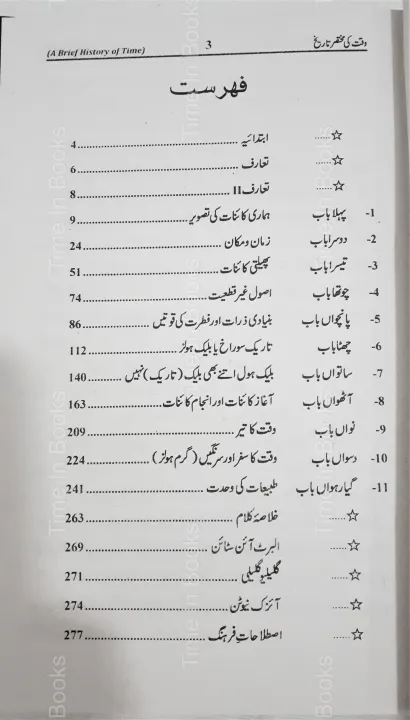 وقت کی مختصر تاریخ 3 (A Brief History of Time)
فہرست
☆...... ابتدائیہ ...... 4
☆...... تعارف ...... 6
☆...... تعارف II ...... 8
1- پہلا باب ہماری کائنات کی تصویر ...... 9
2- دوسرا باب زمان و مکان ...... 24
3- تیسرا باب پھیلتی کائنات ...... 51
4- چوتھا باب اصول غیر قطعیت ...... 74
5- پانچواں باب بنیادی ذرات اور فطرت کی قوتیں ...... 86
6- چھٹا باب تاریک سوراخ یا بلیک ہولز ...... 112
7- ساتواں باب بلیک ہول اتنے بھی بلیک (تاریک) نہیں ...... 140
8- آٹھواں باب آغاز کائنات اور انجام کائنات ...... 163
9- نواں باب وقت کا تیر ...... 209
10- دسواں باب وقت کا سفر اور سرنگیں (گرم ہولز) ...... 224
11- گیارہواں باب طبیعات کی وحدت ...... 241
☆...... خلاصۂ کلام ...... 263
☆...... البرٹ آئن سٹائن ...... 269
☆...... گلیلیو گلیلی ...... 271
☆...... آئزک نیوٹن ...... 274
☆...... اصطلاحات فرہنگ ...... 277
Time In Books